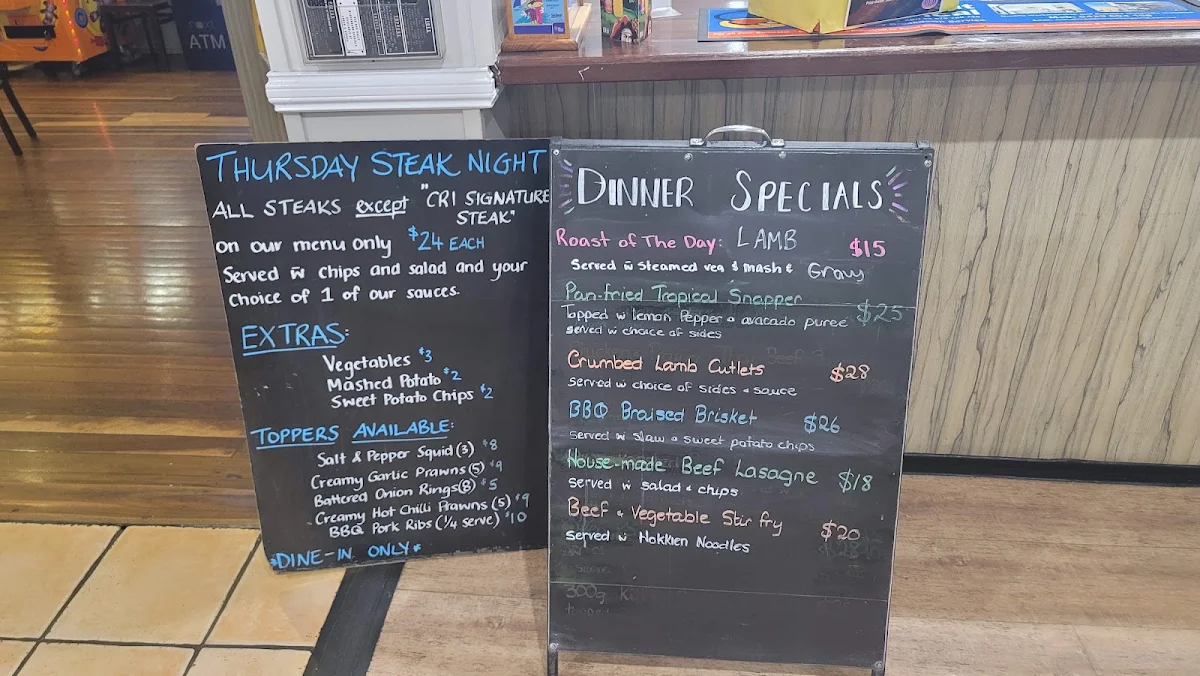 ATM
THURSDAY STEAK NIGHT
ALL STEAKS except "CRI SIGNATURE
STEAK"
on our menu only $24 EACH
Served w̄ chips and salad and your
choice of 1 of our sauces.
EXTRAS:
Vegetables $3
Mashed Potato $2
Sweet Potato Chips $2
TOPPERS AVAILABLE:
Salt & Pepper Squid (3) $8
Creamy Garlic Prawns (5) $9
Battered Onion Rings (8) $5
Creamy Hot Chilli Prawns (5) $9
BBQ Pork Ribs (1/4 serve) $10
*DINE-IN ONLY*
DINNER SPECIALS
Roast of The Day: LAMB $15
Served w̄ steamed veg & mash & Gravy
Pan-fried Tropical Snapper $25
Topped w lemon Pepper & avocado puree
served w choice of sides
Crumbed Lamb Cutlets $28
served w choice of sides & sauce
BBQ Braised Brisket $26
served w slaw & sweet potato chips
House-made Beef Lasagne $18
served w salad & chips
Beef & Vegetable Stir fry $20
served w̄ Hokkien Noodles
300g